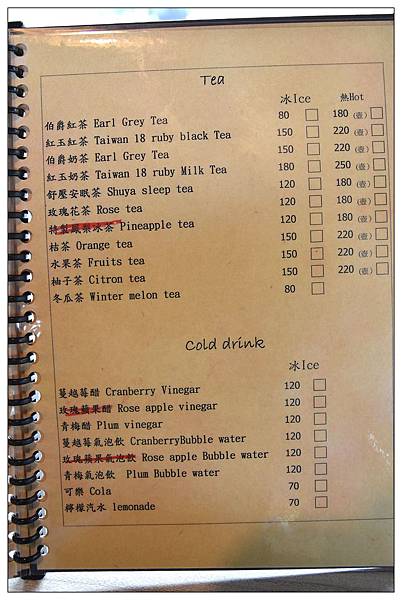 Tea
冰Ice 熱Hot
伯爵紅茶 Earl Grey Tea 80 □ 180 (壺) □
紅玉紅茶 Taiwan 18 ruby black Tea 150 □ 220 (壺) □
伯爵奶茶 Earl Grey Tea 150 □ 220 (壺) □
紅玉奶茶 Taiwan 18 ruby Milk Tea 180 □ 250 (壺) □
舒壓安眠茶 Shuya sleep tea 120 □ 180 (壺) □
玫瑰花茶 Rose tea 120 □ 180 (壺) □
特製鳳梨冰茶 Pineapple tea 120 □ 180 (壺) □
桔茶 Orange tea 150 □ 220 (壺) □
水果茶 Fruits tea 150 □ 220 (壺) □
柚子茶 Citron tea 150 □ 220 (壺) □
冬瓜茶 Winter melon tea 80 □
Cold drink
冰Ice
蔓越莓醋 Cranberry Vinegar 120 □
玫瑰蘋果醋 Rose apple vinegar 120 □
青梅醋 Plum vinegar 120 □
蔓越莓氣泡飲 CranberryBubble water 120 □
玫瑰蘋果氣泡飲 Rose apple Bubble water 120 □
青梅氣泡飲 Plum Bubble water 120 □
可樂 Cola 70 □
檸檬汽水 lemonade 70 □